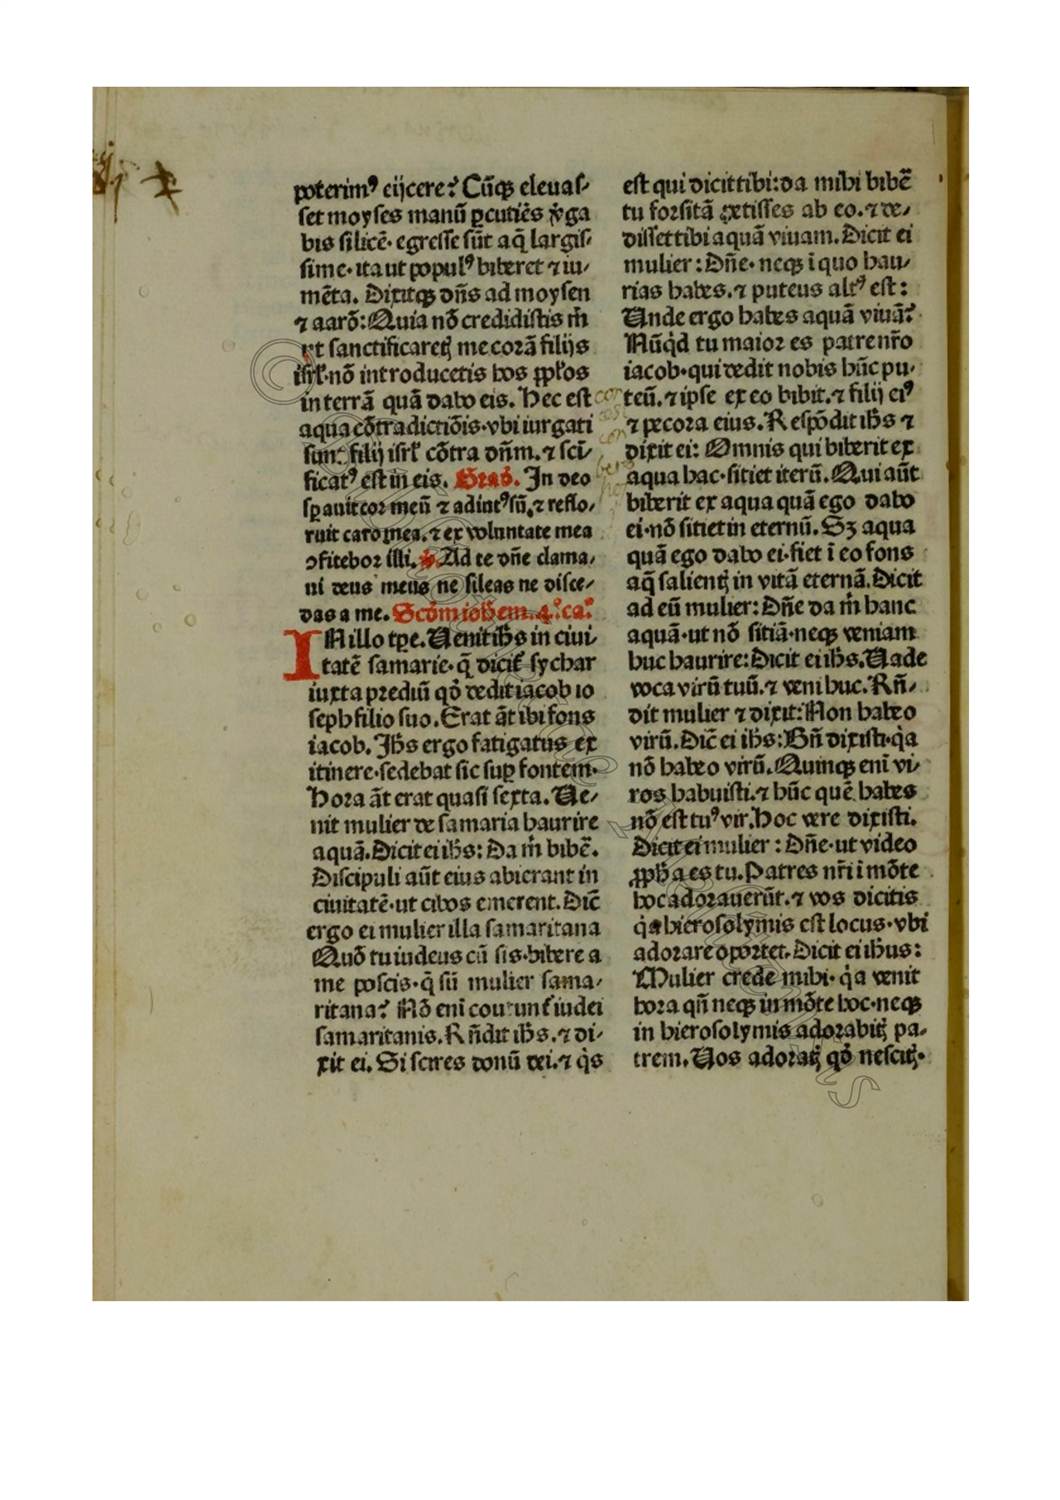 poterimꝰ eijcere? Cūqꝫ eleuas⸗
set moyses manū ꝑcutiēs v̓ga
bis silicē· egresse sūt aq̄ largis⸗
sime· ita ut populꝰ biberet ⁊ iu⸗
mēta. Dixitqꝫ dn̄s ad moysen
⁊ aarō: Quia nō credidistis m̄
vt sanctificaretꝭ me corā filijs
isrł· nō introducetis hos ꝓpłos
in terrā quā dabo eis. Hec est
aqua cōtradictiōis· vbi iurgati
sunt filij isrł cōtra dn̄m. ⁊ scī⸗
ficatꝰ est in eis. Grad̓. In deo
sꝑauit cor meū ⁊ adiutꝰ sū, ⁊ reflo⸗
ruit caro mea. ⁊ ex voluntate mea
ↄfitebor illi. Ad te dn̄e clama⸗
ui deus meus ne sileas ne disce⸗
das a me. Scd̓m ioh̄em. 4.º ca.º
IN illo tꝑe. Uenit ih̄s in ciui⸗
tatē samarie· q̄ dicit᷑ sychar
iuxta prediū qd̓ dedit iacob io
seph filio suo. Erat āt ibi fons
iacob. Ih̄s ergo fatigatus ex
itinere· sedebat sic suꝑ fontem·
Hora āt erat quasi sexta. Ue⸗
nit mulier de samaria haurire
aquā. Dicit ei ih̄s: Da m̄ bibē.
Discipuli aūt eius abierant in
ciuitatē· ut cibos emerent. Dic̄
ergo ei mulier illa samaritana
Quō tu iudeus cū sis· bibere a
me poscis· q̄ sū mulier sama⸗
ritana? Nō enī coutunt᷑ iudei
samaritanis. Rn̄dit ih̄s. ⁊ di⸗
xit ei. Si scires donū dei. ⁊ q̇s
est qui dicit tibi: da mihi bibē
tu forsitā petisses ab eo. ⁊ de⸗
disset tibi aquā viuam. Dicit ei
mulier: Dn̄e· neqꝫ ī quo hau⸗
rias habes. ⁊ puteus altꝰ est:
Unde ergo habes aquā viuā?
Nūq̇d tu maior es patre nr̄o
iacob· qui dedit nobis hūc pu⸗
teū. ⁊ ipse ex eo bibit. ⁊ filij eiꝰ
⁊ pecora eius. Respōdit ih̄s ⁊
dixit ei: Omnis qui biberit ex
aqua hac· sitiet iterū. Qui aūt
biberit ex aqua quā ego dabo
ei· nō sitiet in eternū. Sꝫ aqua
quā ego dabo ei· fiet ī eo fons
aq̄ salientꝭ in vitā eternā. Dicit
ad eū mulier: Dn̄e da m̄ hanc
aquā· ut nō sitiā· neqꝫ veniam
huc haurire: Dicit ei ih̄s. Uade
voca virū tuū. ⁊ veni huc. Rn̄⸗
dit mulier ⁊ dixit: Non habeo
virū. Dic̄ ei ih̄s: Bn̄ dixisti· q̇a
nō habeo virū. Quinqꝫ enī vi⸗
ros habuisti. ⁊ hūc quē habes
nō est tuꝰ vir. Hoc vere dixisti.
Dicit ei mulier: Dn̄e· ut video
ꝓph̄a es tu. Patres nr̄i ī mōte
hoc adorauerūt. ⁊ vos dicitis
q̇a hierosolymis est locus· vbi
adorare oportet. Dicit ei ih̄us:
Mulier crede mihi· q̇a venit
hora qn̄ neqꝫ in mōte hoc· neqꝫ
in hierosolymis adorabitꝭ pa⸗
trem. Uos adoratꝭ qd̓ nescitꝭ·